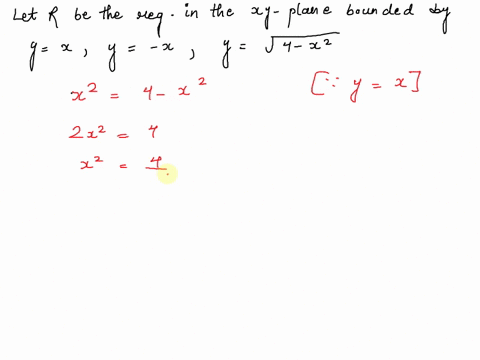 Let R be the reg. in the xy-plane bounded by
y = x , y = -x , y = √(4-x²)
x² = 4 - x² [∵ y = x]
2x² = 4
x² = 4/